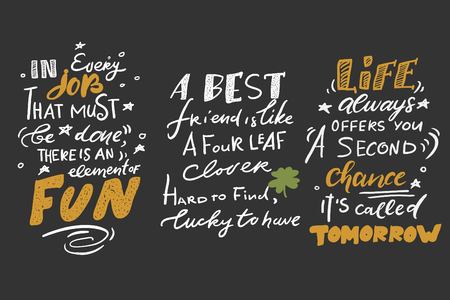 IN Every
job
THAT MUST
be done,
THERE IS AN
element of
FUN
A BEST
friend is like
A FOUR LEAF
clover
HARD to FIND,
lucky to have
LiFE
always
OFFERS YOU
A SECOND
chance
it's called
TOMORROW